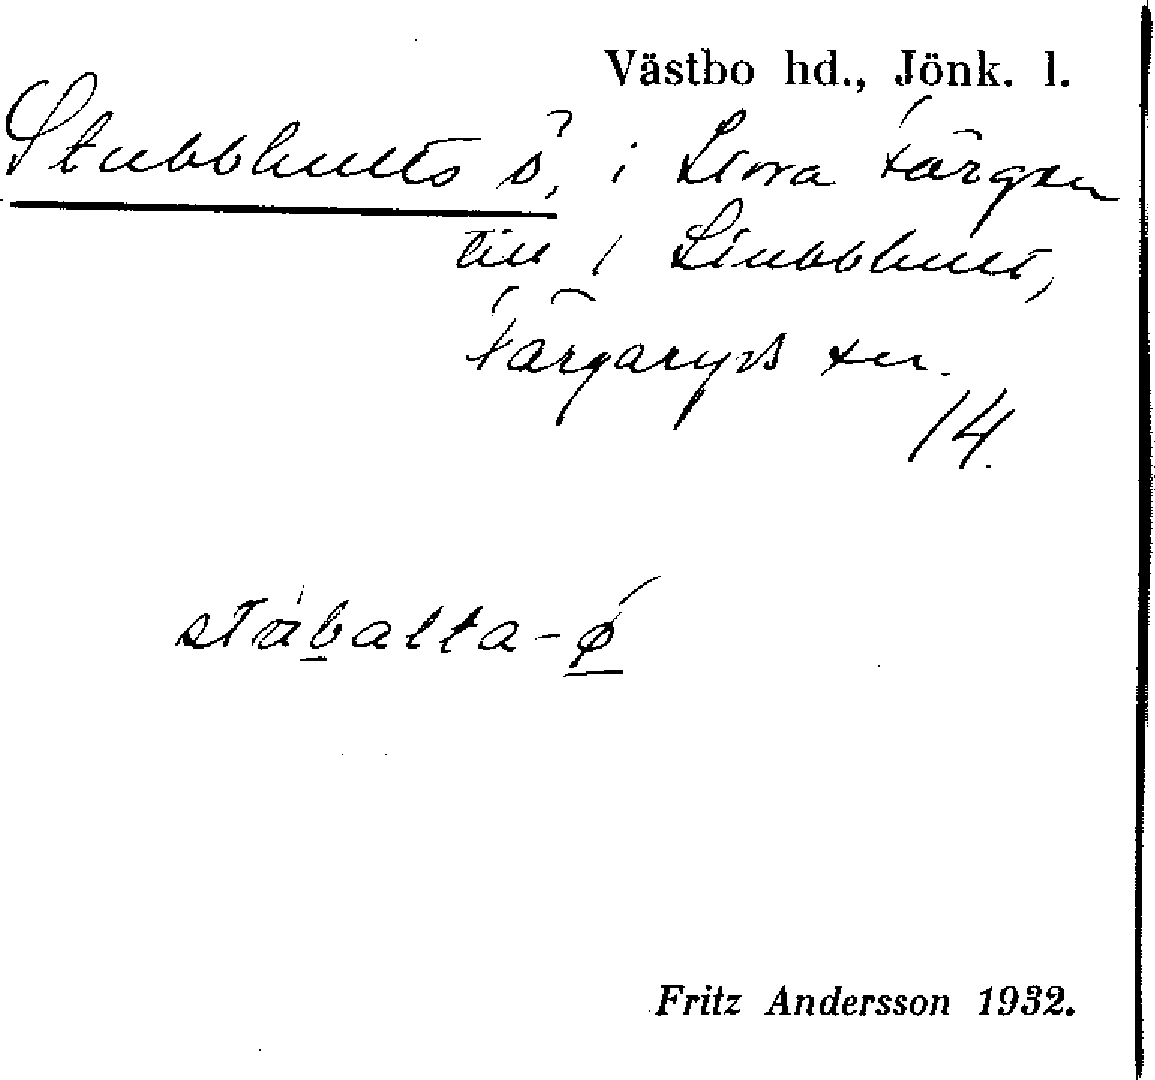 Västbo hd., Jönk. l.
Stubbhults ö, i Stora Färgen
till 1 Stubbhult,
Färgaryds sn.
14.
stůbalta-ǿ
Fritz Andersson 1932.